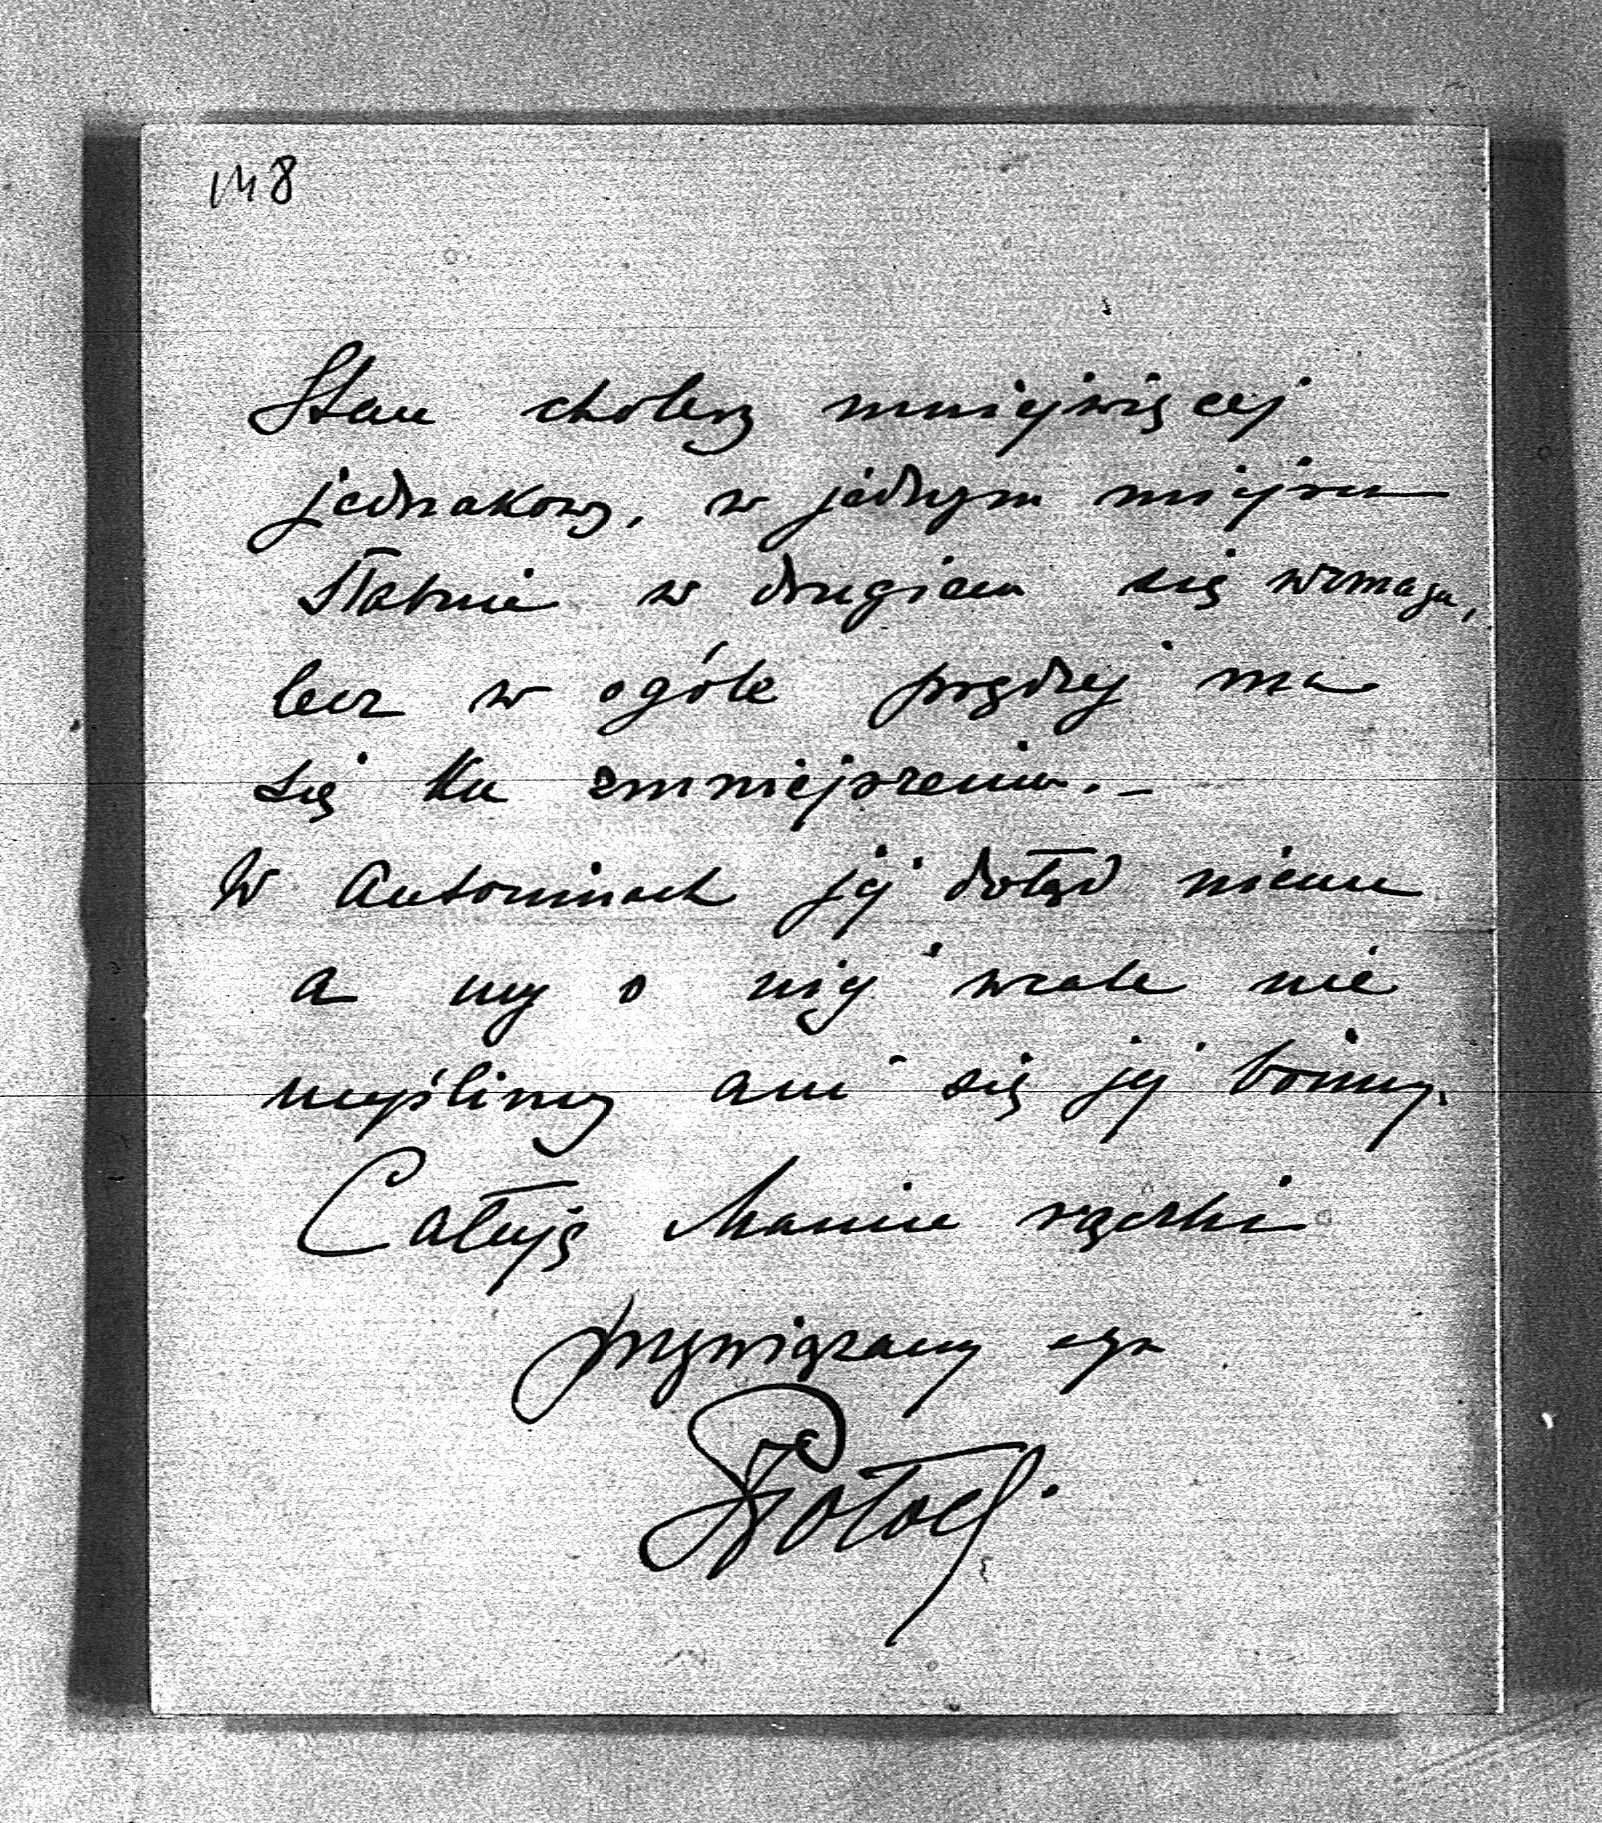 148
Stan cholery mniejwięcej
jednakowy, w jednym miejscu
słabnie w drugiem się wzmaga,
lecz w ogóle prędzej ma
się ku zmniejszeniu. –
W Antoninach jej dotąd niema
a my o niej wcale nie
myślimy ani się jej boimy.
Całuję Mamie rączki
przywiązany syn
JPotocki